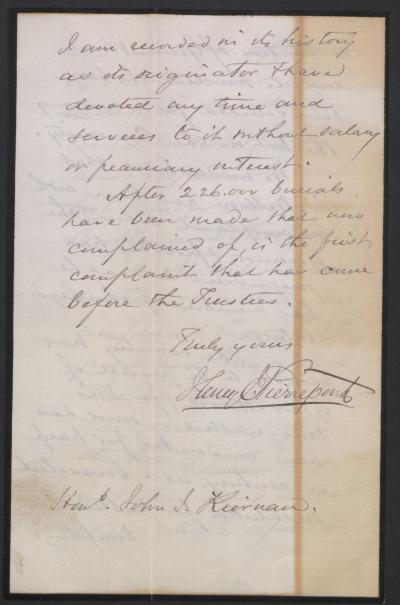 I am recorded in its history
as its originator & have
devoted my time and
services to it without salary
or pecuniary interest.
After 226.000 burials
have been made that now
complained of, is the first
complaint that has come
before the Trustees.
Truly yours
Henry E Pierrepont
Honble. John J. Kiernan.